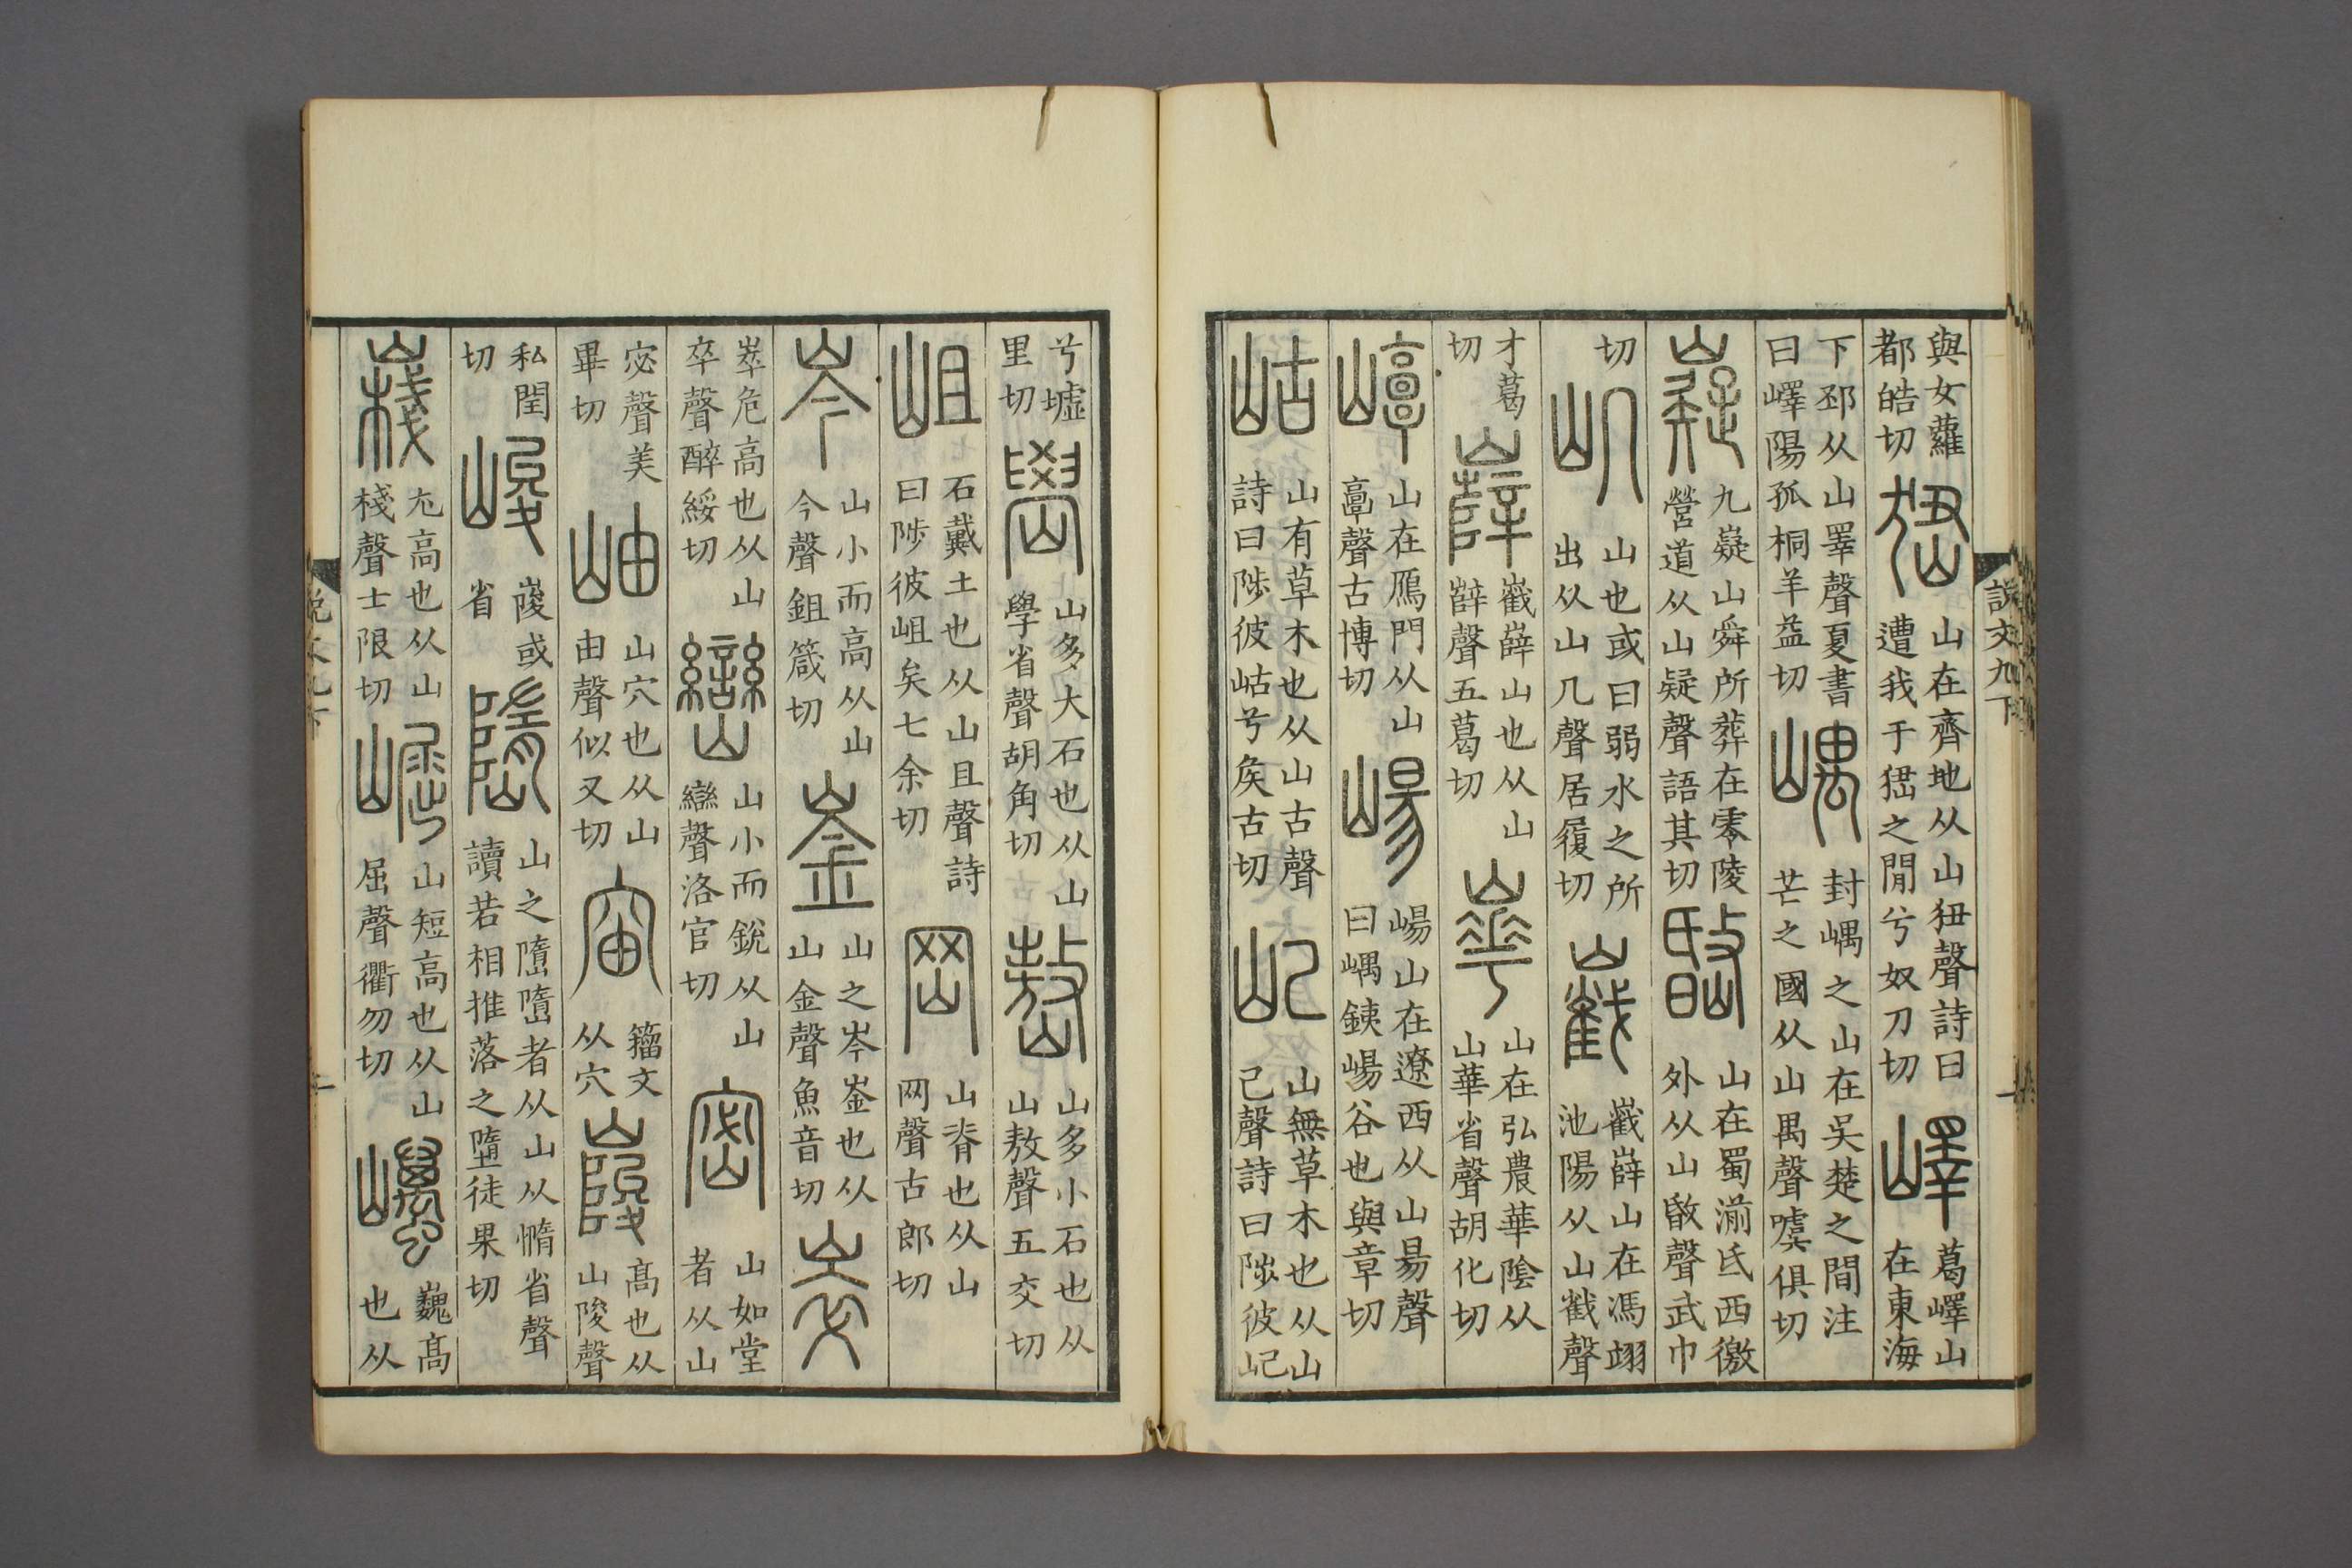 說文九下
與女蘿都皓切峱山在齊地从山狃聲詩曰遭我于峱之閒兮奴刀切嶧葛嶧山在東海
下邳从山睪聲夏書曰嶧陽孤桐羊益切嵎封嵎之山在吳楚之間注芒之國从山禺聲噳俱切
嶷九嶷山舜所葬在零陵營道从山疑聲語其切㟭山在蜀湔氐西徼外从山敃聲武巾
切屼山也或曰弱水之所出从山几聲居履切巀巀嶭山在馮翊池陽从山𢧵聲
才葛切嶭巀嶭山也从山辥聲五葛切崋山在弘農華陰从山華省聲胡化切
崞山在鴈門从山𩫏聲古博切崵崵山在遼西从山昜聲一曰嵎銕崵谷也與章切
岵山有草木也从山古聲詩曰陟彼岵兮矦古切屺山無草木也从山己聲詩曰陟彼屺
兮墟里切嶨山多大石也从山學省聲胡角切嶅山多小石也从山敖聲五交切
岨石戴土也从山且聲詩曰陟彼岨矣七余切岡山脊也从山网聲古郎切
岑山小而高从山今聲鉏箴切崟山之岑崟也从山金聲魚音切崒
崒危高也从山卒聲醉綏切巒山小而銳从山䜌聲洛官切密山如堂者从山
宓聲美畢切岫山穴也从山由聲似又切𥥉籀文从穴𡺲高也从山陖聲
私閏切峻𡺲或省嶞山之嶞嶞者从山从憜省聲讀若相推落之墮徒果切
嶘尢高也从山棧聲士限切崛山短高也从山屈聲衢勿切巁巍高也从
說文九下